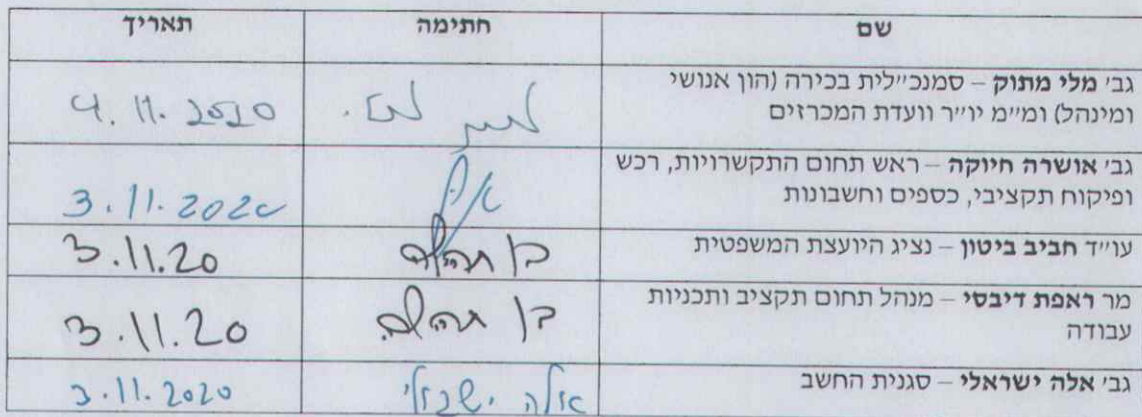 שם חתימה תאריך
גב׳ מלי מתוק – סמנכ״לית בכירה (הון אנושי
ומינהל) ומ״מ יו״ר וועדת המכרזים 4.11.2020
גב׳ אושרה חיוקה – ראש תחום התקשרויות, רכש
ופיקוח תקציבי, כספים וחשבונות 3.11.2020
עו״ד חביב ביטון – נציג היועצת המשפטית 3.11.20
מר ראפת דיבסי – מנהל תחום תקציב ותכניות
עבודה 3.11.20
גב׳ אלה ישראלי – סגנית החשב אלה ישראלי 3.11.2020